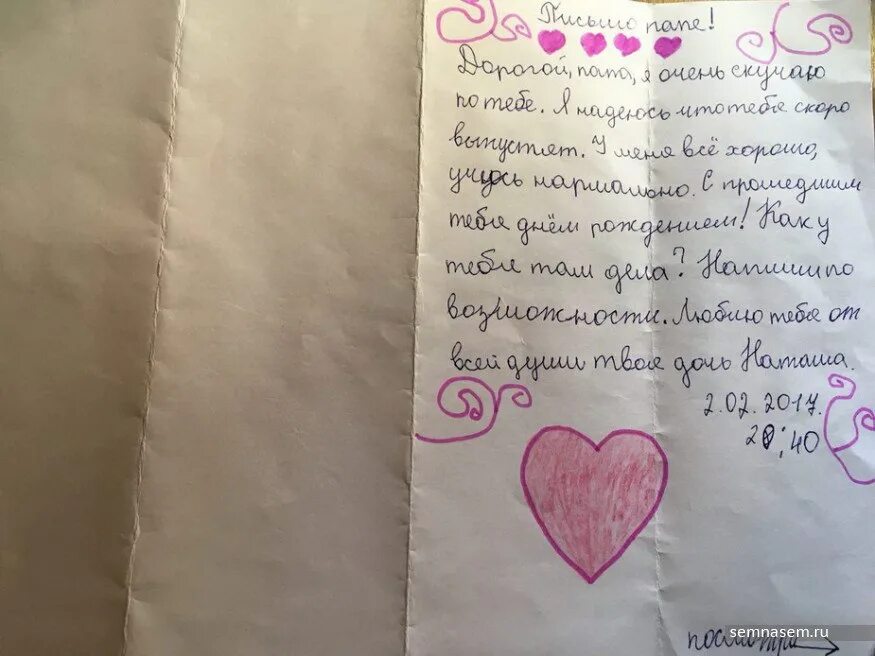 Письмо папе!
Дорогой, папа, я очень скучаю
по тебе. Я надеюсь что тебя скоро
выпустят. У меня всё хорошо,
учусь нармально. С прошедшим
тебя днём рождением! Как у
тебя там дела? Напиши по
возможности. Люблю тебя от
всей души твоя дочь Наташа.
2.02.2017.
20:40
посмотри
semnasem.ru